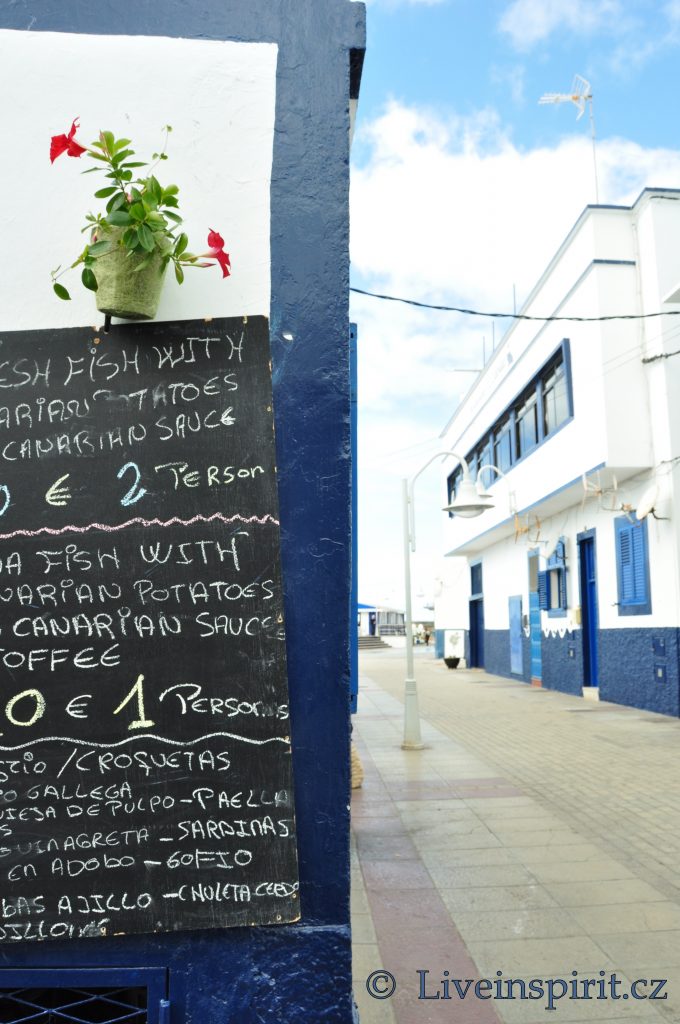 ESH FISH WITH
ARIAN TATOES
CANARIAN SAUCE
0 € 2 PERSON
FISH WITH
ARIAN POTATOES
CANARIAN SAUCE
TOFFEE
0 € 1 PERSONS
/CROQUETAS
O GALLEGA
VIEJA DE PULPO - PAELLA
S
UINAGRETA - SARDINAS
EN ADOBO - GOFIO
BAS AJILLO - CHULETA CERDO
DILLO
© Liveinspirit.cz